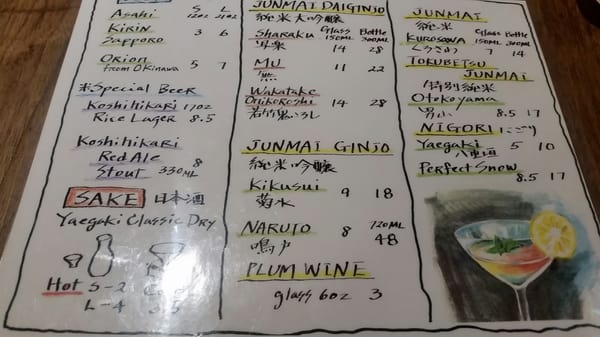 S L
Asahi 12oz 21oz
Kirin 3 6
Sapporo
Orion 5 7
from Okinawa
米 Special Beer
Koshihikari 17oz
Rice Lager 8.5
Koshihikari
Red Ale 8
Stout 330ML
SAKE 日本酒
Yaegaki Classic Dry
Hot S-2
L-4
JUNMAI DAIGINJO
純米大吟醸 Glass Bottle
Sharaku 150ML 300ML
14 28
Mu 11 22
無
Wakatake
Onikoroshi 14 28
若竹鬼ころし
JUNMAI GINJO
純米吟醸
Kikusui 9 18
菊水
Naruto 8 720ML
鳴戸 48
PLUM WINE
glass 6oz 3
JUNMAI
純米 Glass Bottle
Kurosawa 150ML 300ML
くろさわ 7 14
TOKUBETSU
JUNMAI
特別純米
Otokoyama
男山 8.5 17
NIGORI にごり
Yaegaki 5 10
八重垣
Perfect Snow
8.5 17